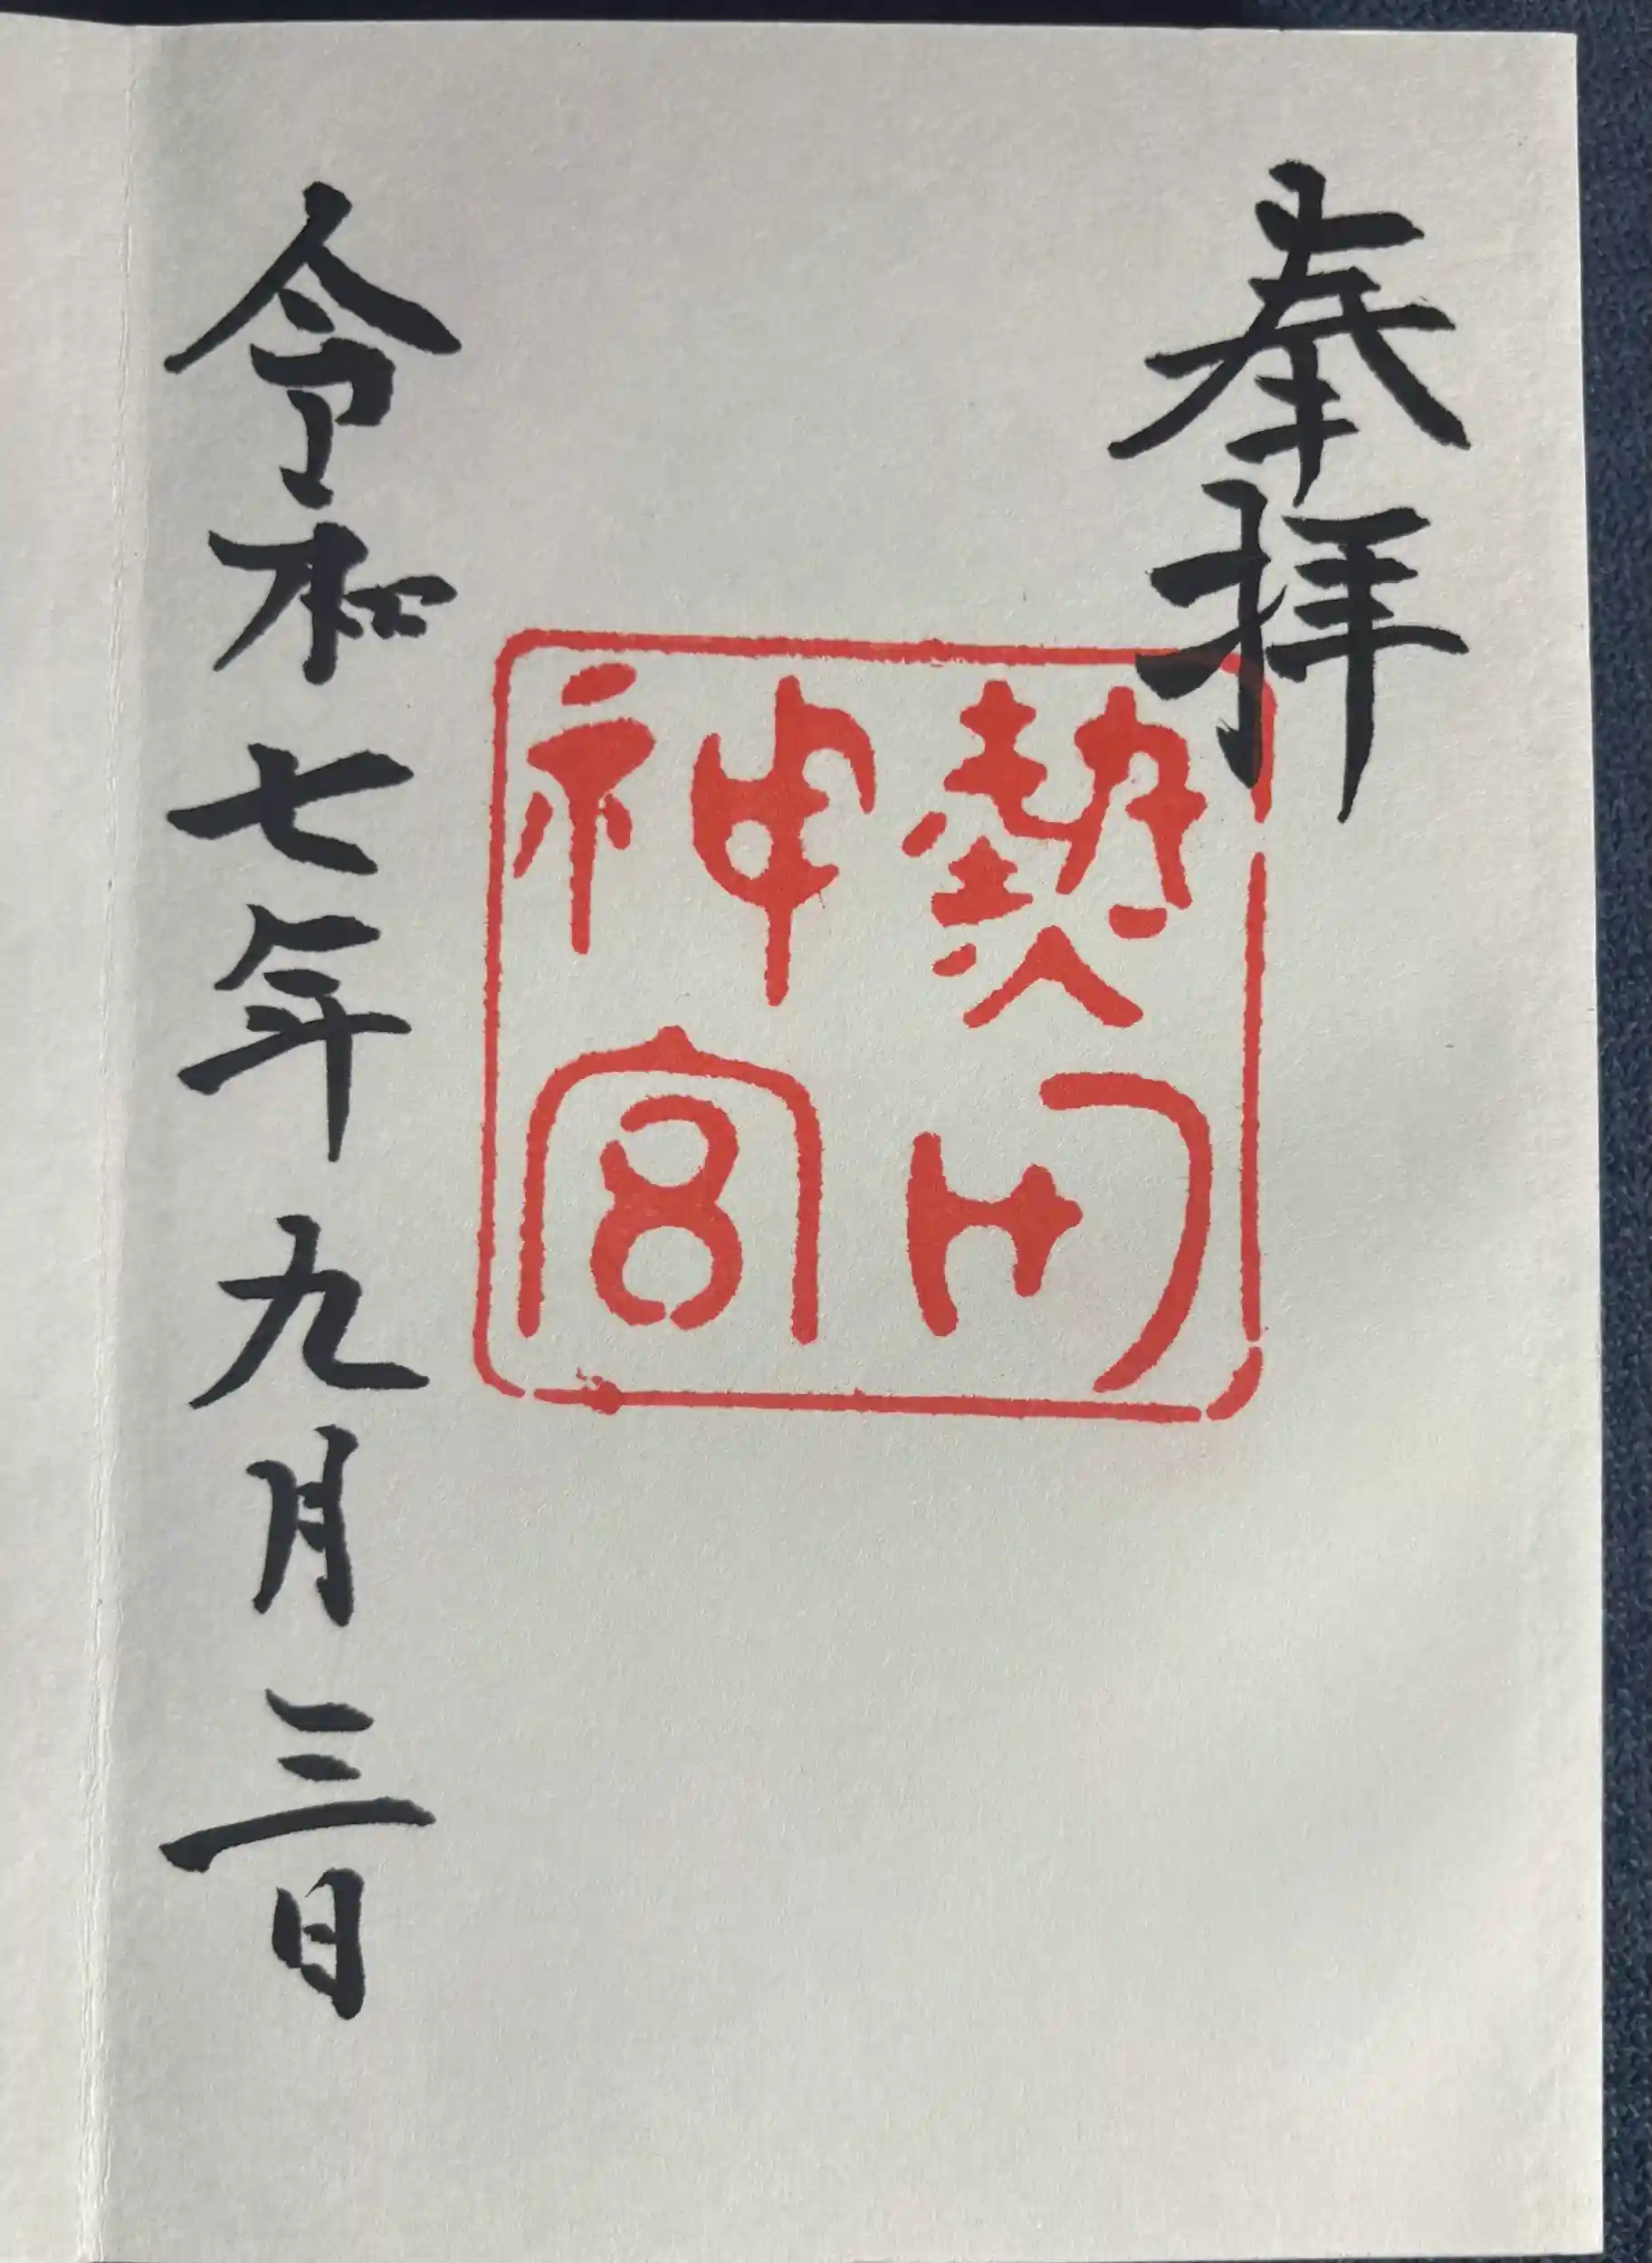 奉拝
熱田
神宮
令和七年九月三日